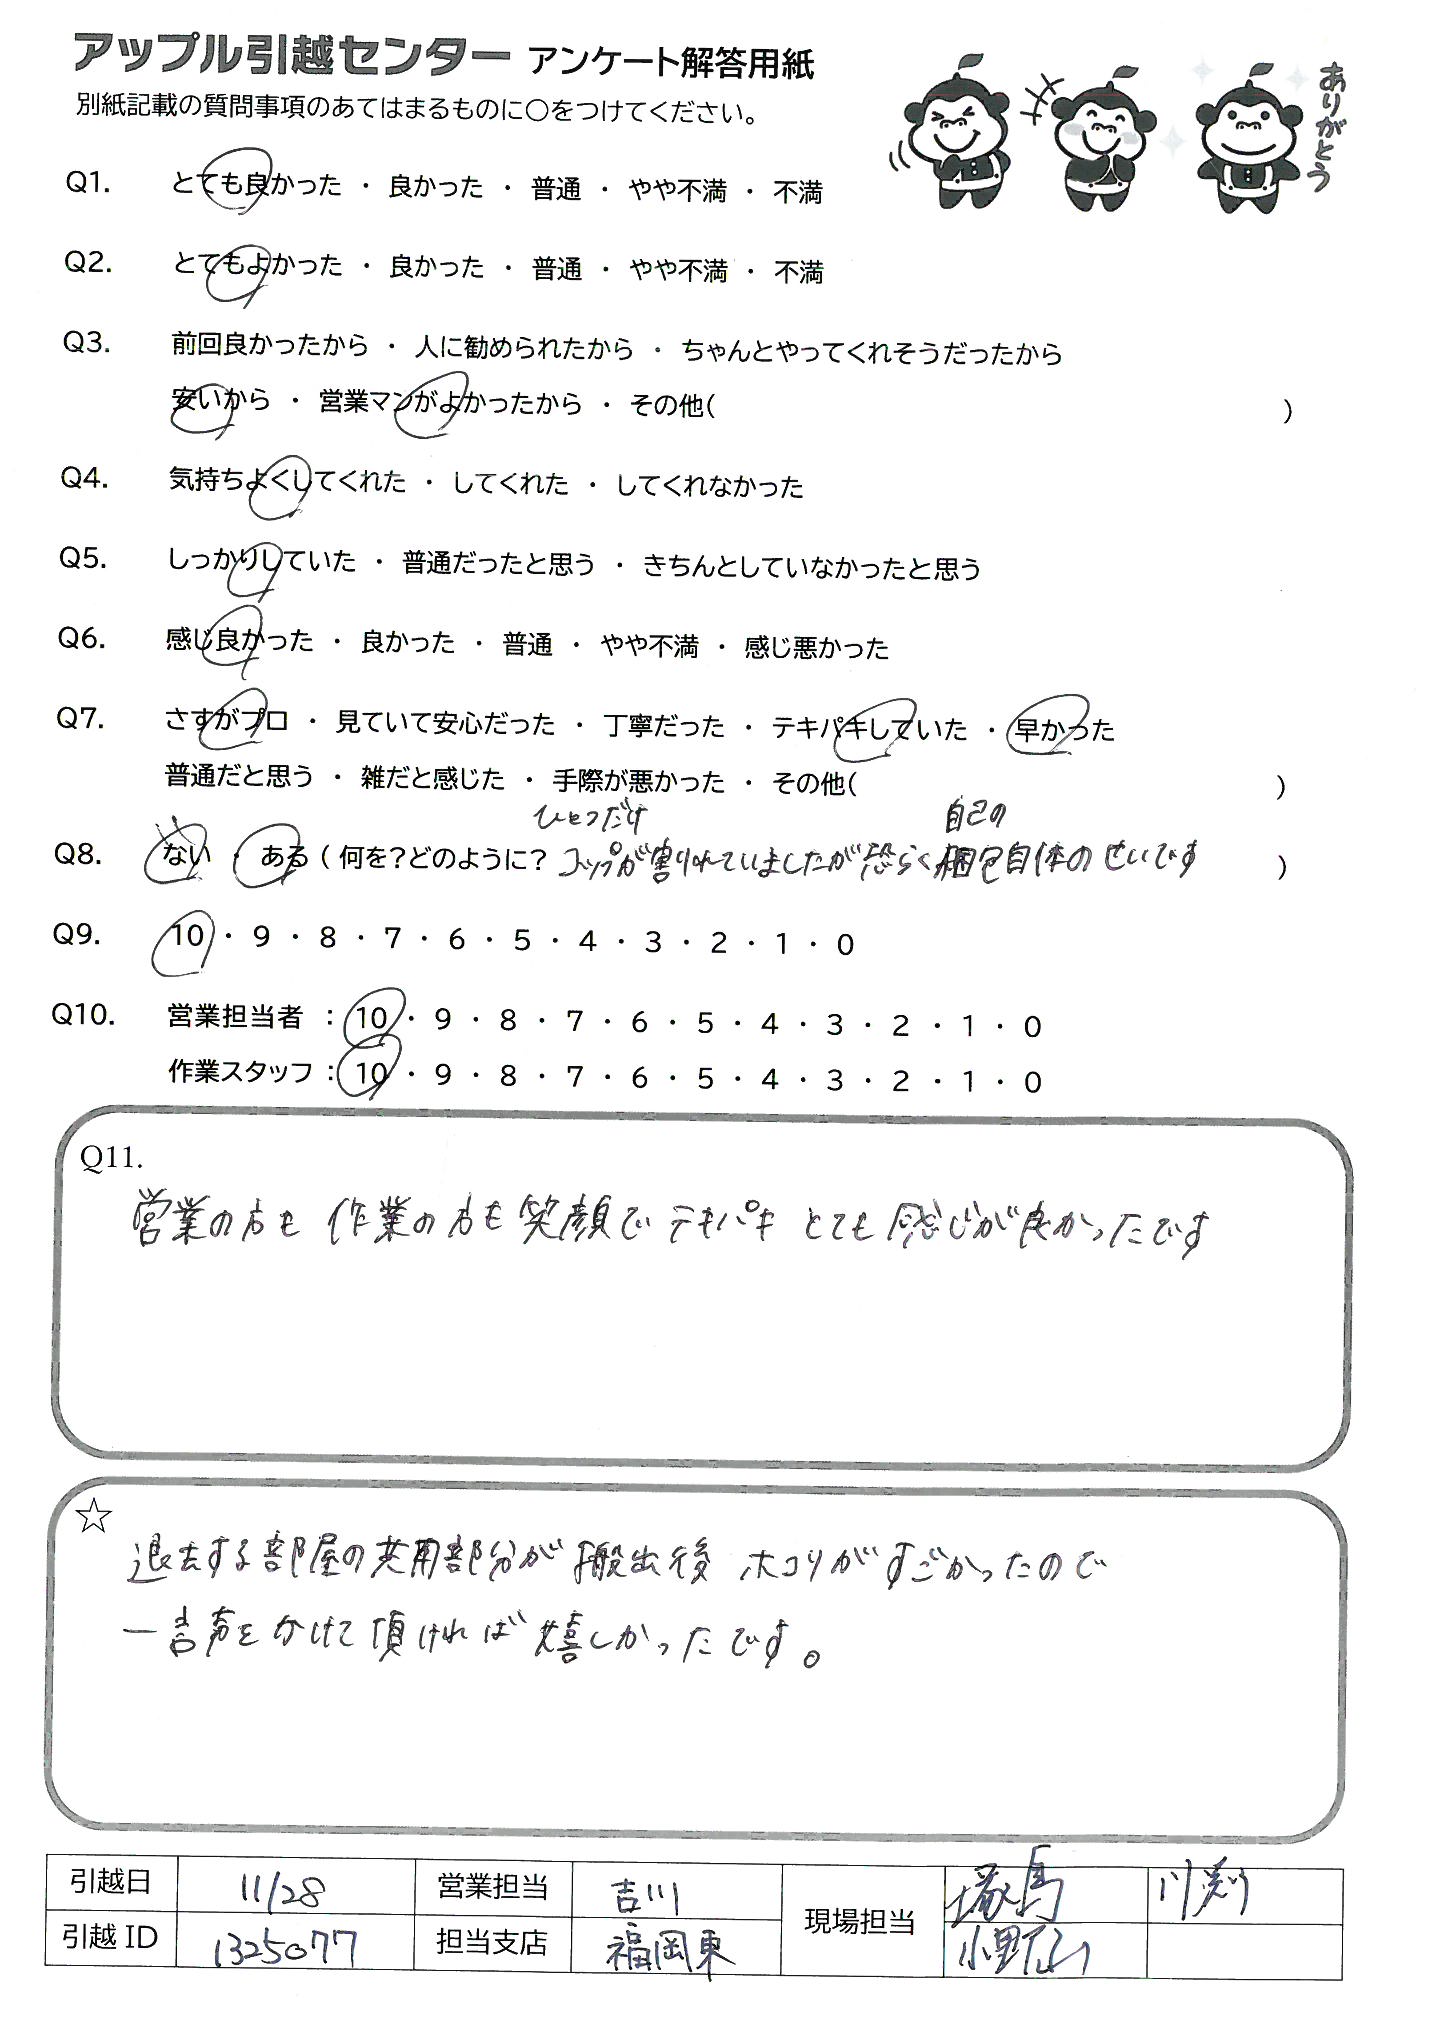 アップル引越センター アンケート解答用紙
別紙記載の質問事項のあてはまるものに〇をつけてください。
ありがとう
Q1. とても良かった ・ 良かった ・ 普通 ・ やや不満 ・ 不満
Q2. とてもよかった ・ 良かった ・ 普通 ・ やや不満 ・ 不満
Q3. 前回良かったから ・ 人に勧められたから ・ ちゃんとやってくれそうだったから
安いから ・ 営業マンがよかったから ・ その他( )
Q4. 気持ちよくしてくれた ・ してくれた ・ してくれなかった
Q5. しっかりしていた ・ 普通だったと思う ・ きちんとしていなかったと思う
Q6. 感じ良かった ・ 良かった ・ 普通 ・ やや不満 ・ 感じ悪かった
Q7. さすがプロ ・ 見ていて安心だった ・ 丁寧だった ・ テキパキしていた ・ 早かった
普通だと思う ・ 雑だと感じた ・ 手際が悪かった ・ その他( )
ひとつだけ 自己の
Q8. ない ・ ある ( 何を?どのように? コップが割れていましたが恐らく梱包自体のせいです )
Q9. 10 ・ 9 ・ 8 ・ 7 ・ 6 ・ 5 ・ 4 ・ 3 ・ 2 ・ 1 ・ 0
Q10. 営業担当者 : 10 ・ 9 ・ 8 ・ 7 ・ 6 ・ 5 ・ 4 ・ 3 ・ 2 ・ 1 ・ 0
作業スタッフ : 10 ・ 9 ・ 8 ・ 7 ・ 6 ・ 5 ・ 4 ・ 3 ・ 2 ・ 1 ・ 0
Q11.
営業の方も 作業の方も笑顔で テキパキ とても 感じが良かったです
☆
退去する部屋の共用部分が 搬出後 ホコリがすごかったので
一言声をかけて頂ければ嬉しかったです。
引越日 11/28 営業担当 吉川 現場担当 塚馬
引越 ID 1325077 担当支店 福岡東 小野山